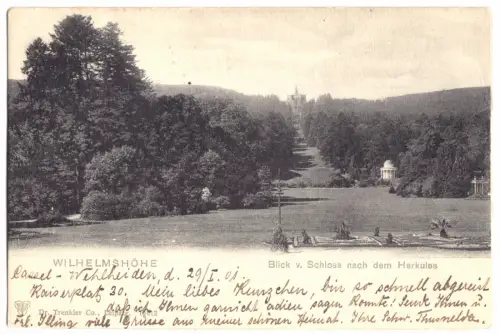 WILHELMSHÖHE
Blick v. Schloss nach dem Herkules
Cassel - Wehlheiden d. 29/I. 01
Kaiserplatz 30. Mein liebes Hänschen, bin so schnell abgereist
daß ich Ihnen garnicht adieu sagen konnte. Sende Ihnen u.
Trenkler Co., Leipzig
Frl. Elling viele Grüsse aus meiner schönen Heimat. Ihre Schw. Thusnelda.